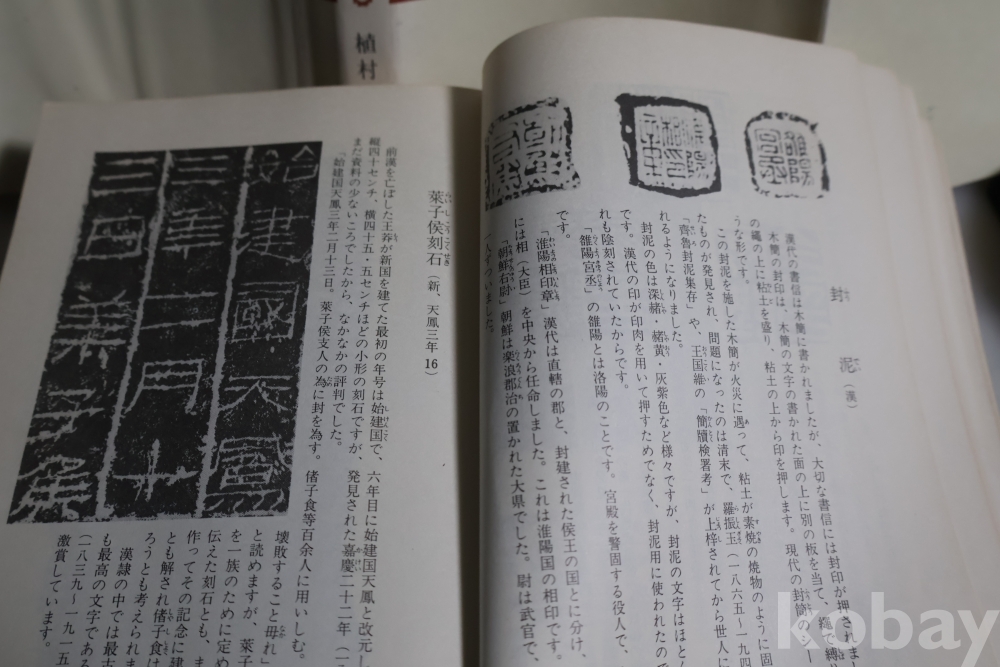 植村
封泥（漢）
漢代の書信は木簡に書かれましたが、大切な書信には封印が押されま
木簡の封印は、木簡の文字の書かれた面の上に別の板を当て、縄で縛
の縄の上に粘土を盛り、粘土の上から印を押します。現代の封筒のシー
うな形です。
この封泥を施した木簡が火災に遇って、粘土が素焼の焼物のように固
たものが発見され、問題になったのは清末で、羅振玉（一八六五〜一九四
「齊魯封泥集存」や、王国維の「簡牘検署考」が上梓されてから世人に
れるようになりました。
封泥の色は深緒・赭黄・灰紫色など様々ですが、封泥の文字はほとん
です。漢代の印が印肉を用いて押すためでなく、封泥用に使われたので
れも陰刻されていたからです。
「雒陽宮丞」の雒陽とは洛陽のことです。宮殿を警固する役人で、
です。
「淮陽相印章」漢代は直轄の郡と、封建された侯王の国とに分け、
には相（大臣）を中央から任命しました。これは淮陽国の相印です。
「朝鮮右尉」朝鮮は楽浪郡治の置かれた大県でした。尉は武官で、
萊子侯刻石（新、天鳳三年16）
前漢を亡ぼした王莽が新国を建てた最初の年号は始建国で、六年目に始建国天鳳と改元し
縦四十センチ、横四十五・五センチほどの小形の刻石ですが、発見された嘉慶二十二年（一
まだ資料の少ないころでしたから、なかなかの評判でした。
「始建国天鳳三年二月十三日。萊子侯支人の為に封を為す。偖子食等百余人に用いしむ。
壊敗すること毋れ」
と読めますが、萊子
を一族のために定め
伝えた刻石とも、ま
作ってその記念に建
とも解され偖子食は
ろうとも考えられま
漢隷の中では最古
も最高の文字である
（一八三九〜一九一五
激賞しています。
始建國天鳳
三年二月十
三日萊子侯
kobay